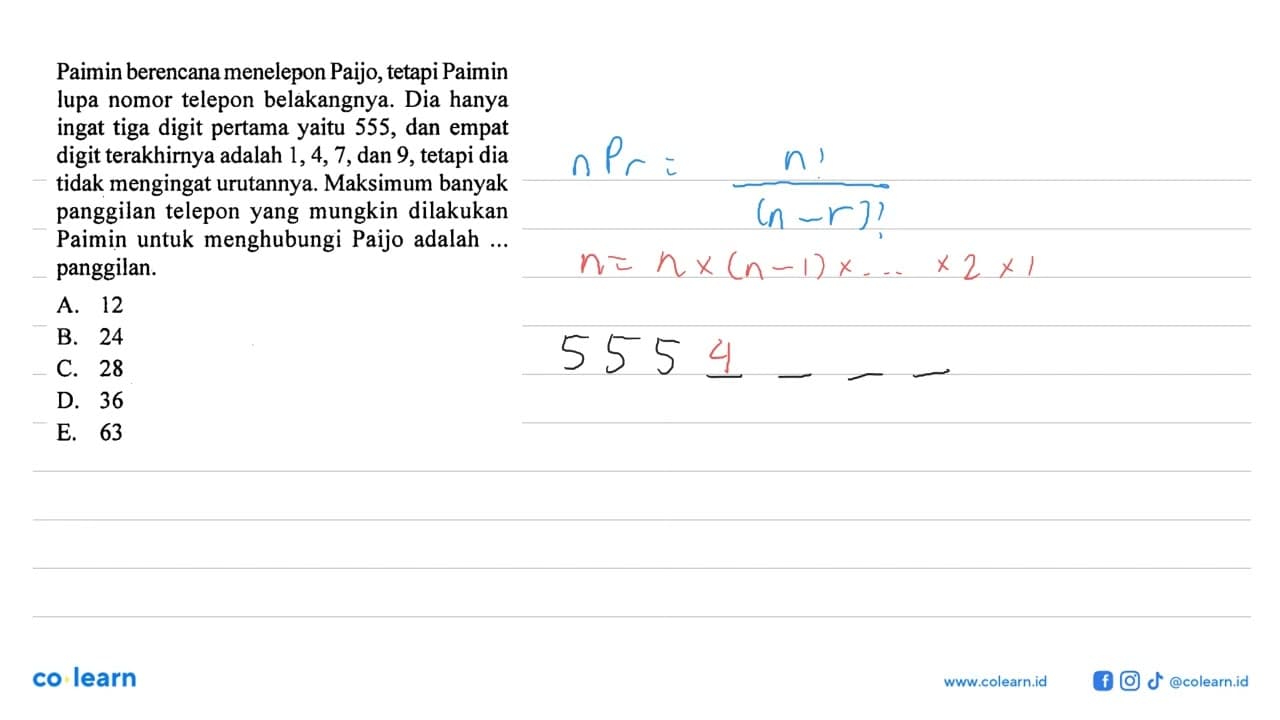 Paimin berencana menelepon Paijo, tetapi Paimin
lupa nomor telepon belakangnya. Dia hanya
ingat tiga digit pertama yaitu 555, dan empat
digit terakhirnya adalah 1, 4, 7, dan 9, tetapi dia
tidak mengingat urutannya. Maksimum banyak
panggilan telepon yang mungkin dilakukan
Paimin untuk menghubungi Paijo adalah ...
panggilan.
A. 12
B. 24
C. 28
D. 36
E. 63
nPr = n! / (n-r)!
n = n × (n-1) × ... × 2 × 1
5 5 5 4 _ _ _
co learn
www.colearn.id
@colearn.id